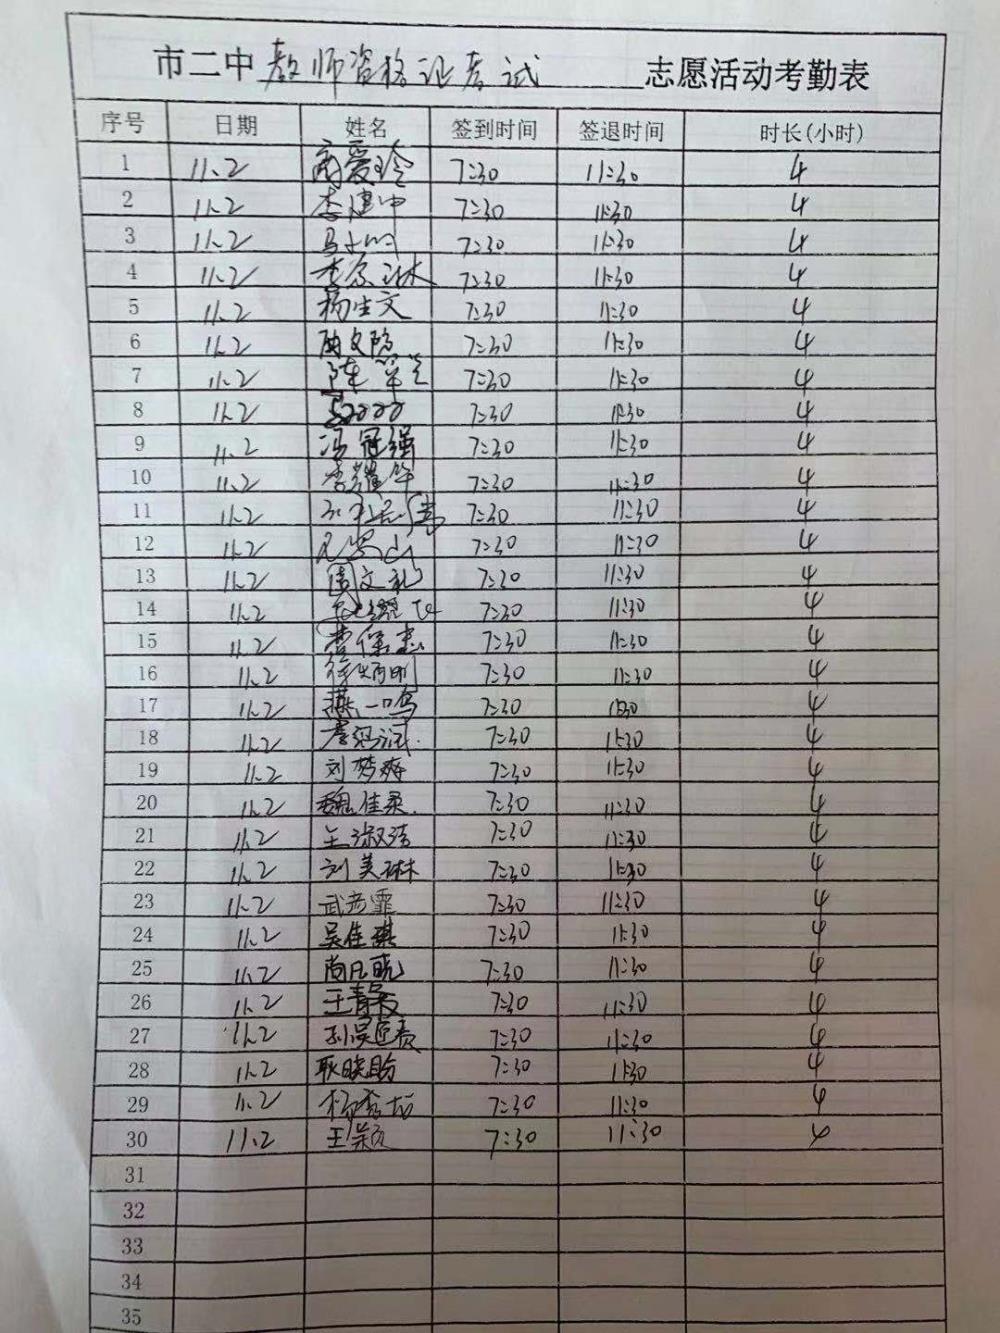 市二中教师资格证考试志愿活动考勤表
序号 日期 姓名 签到时间 签退时间 时长(小时)
1 11.2 商爱玲 7:30 11:30 4
2 11.2 李建中 7:30 11:30 4
3 11.2 7:30 11:30 4
4 11.2 7:30 11:30 4
5 11.2 杨生文 7:30 11:30 4
6 11.2 7:30 11:30 4
7 11.2 7:30 11:30 4
8 11.2 7:30 11:30 4
9 11.2 冯冠强 7:30 11:30 4
10 11.2 李耀华 7:30 11:30 4
11 11.2 7:30 11:30 4
12 11.2 7:30 11:30 4
13 11.2 周文礼 7:30 11:30 4
14 11.2 7:30 11:30 4
15 11.2 7:30 11:30 4
16 11.2 徐炳明 7:30 11:30 4
17 11.2 一鸣 7:30 11:30 4
18 11.2 7:30 11:30 4
19 11.2 刘梦婷 7:30 11:30 4
20 11.2 魏佳柔 7:30 11:30 4
21 11.2 王淑洁 7:30 11:30 4
22 11.2 刘美琳 7:30 11:30 4
23 11.2 武彦霏 7:30 11:30 4
24 11.2 吴佳琪 7:30 11:30 4
25 11.2 尚凡晓 7:30 11:30 4
26 11.2 王静 7:30 11:30 4
27 11.2 7:30 11:30 4
28 11.2 耿晓盼 7:30 11:30 4
29 11.2 杨 7:30 11:30 4
30 11.2 王颖 7:30 11:30 4
31
32
33
34
35